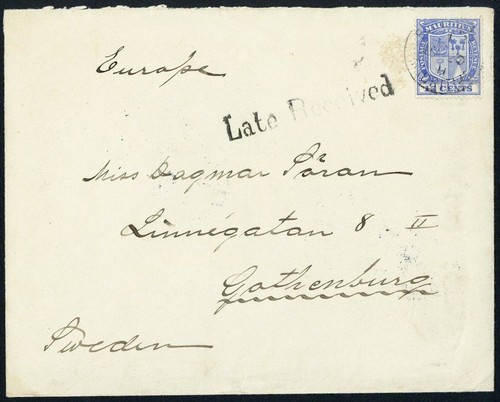 MAURITIUS
POSTAGE
REVENUE
CENTS
Europe
Late Received
Miss Dagmar Söran
Linnégatan 8 II
Gothenburg
Sweden